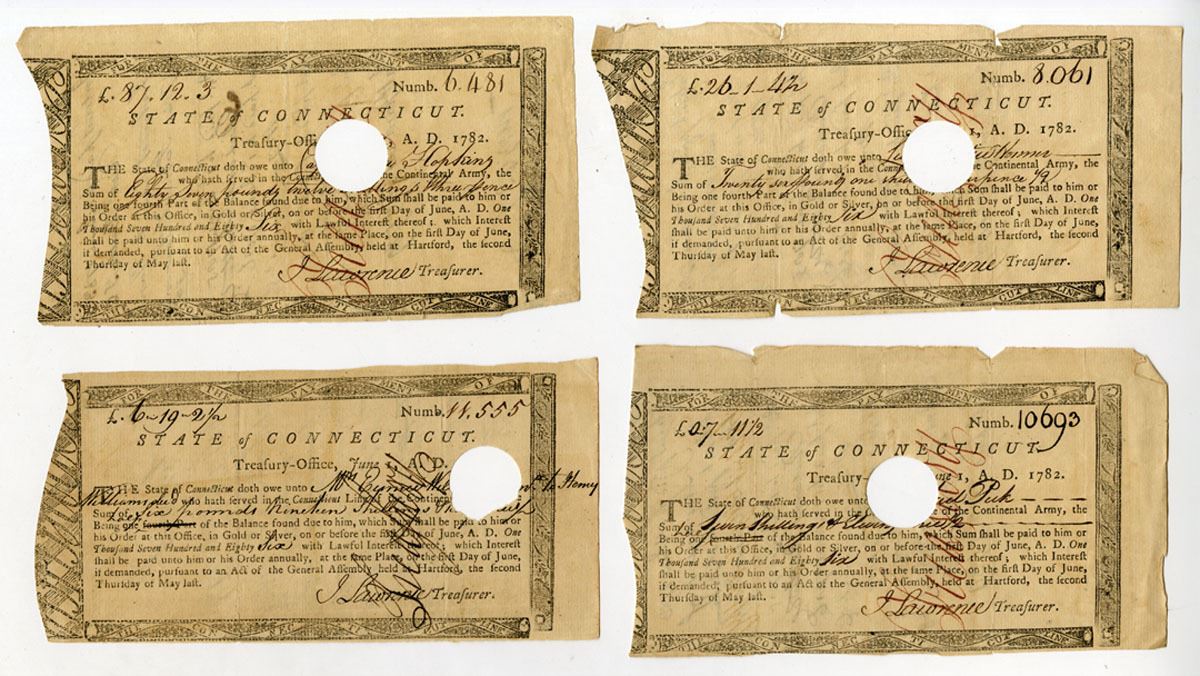 FOR THE PAY MENT OF
£.87.12.3 Numb. 6.481
STATE of CONNECTICUT.
Treasury-Office, 1, A. D. 1782.
THE State of Connecticut doth owe unto Hopkins
who hath served in the Connecticut the Continental Army, the
Sum of Eighty Seven pounds twelve Shillings three pence
Being one fourth Part of the Balance found due to him, which Sum shall be paid to him or
his Order at this Office, in Gold or Silver, on or before the first Day of June, A. D. One
Thousand Seven Hundred and Eighty Six with Lawful Interest thereof; which Interest
shall be paid unto him or his Order annually, at the same Place, on the first Day of June,
if demanded, pursuant to an Act of the General Assembly, held at Hartford, the second
Thursday of May last.
J Lawrence Treasurer.
CON NEC TI CUT LINE
FOR THE PAY MENT OF
£.26-1-4½ Numb. 8.061
STATE of CONNECTICUT.
Treasury-Office 1, A. D. 1782.
THE State of Connecticut doth owe unto
who hath served in the Continental Army, the
Sum of Twenty six pound one
Being one fourth Part of the Balance found due to him, which Sum shall be paid to him or
his Order at this Office, in Gold or Silver, on or before the first Day of June, A. D. One
Thousand Seven Hundred and Eighty Six with Lawful Interest thereof; which Interest
shall be paid unto him or his Order annually, at the same Place, on the first Day of June,
if demanded, pursuant to an Act of the General Assembly, held at Hartford, the second
Thursday of May last.
J Lawrence Treasurer.
CON NEC TI CUT LINE
FOR THE PAY MENT OF
£.6-19-2½ Numb. 11.555
STATE of CONNECTICUT.
Treasury-Office, June 1, A. D.
THE State of Connecticut doth owe unto to Henry
Williams who hath served in the Connecticut Line of the Continental
Sum of Six pounds Nineteen Shillings
Being one fourth Part of the Balance found due to him, which Sum shall be paid to him or
his Order at this Office, in Gold or Silver, on or before the first Day of June, A. D. One
Thousand Seven Hundred and Eighty Six with Lawful Interest thereof; which Interest
shall be paid unto him or his Order annually, at the same Place, on the first Day of June,
if demanded, pursuant to an Act of the General Assembly, held at Hartford, the second
Thursday of May last.
J Lawrence Treasurer.
CON NEC TI CUT LINE
FOR THE PAY MENT OF
£0.7-11½ Numb. 10693
STATE of CONNECTICUT
Treasury- June 1, A. D. 1782.
THE State of Connecticut doth owe unto Peck
who hath served in the Connecticut of the Continental Army, the
Sum of Seven Shillings &
Being one fourth Part of the Balance found due to him, which Sum shall be paid to him or
his Order at this Office, in Gold or Silver, on or before the first Day of June, A. D. One
Thousand Seven Hundred and Eighty Six with Lawful Interest thereof; which Interest
shall be paid unto him or his Order annually, at the same Place, on the first Day of June,
if demanded, pursuant to an Act of the General Assembly, held at Hartford, the second
Thursday of May last.
J Lawrence Treasurer.
CON NEC TI CUT LINE